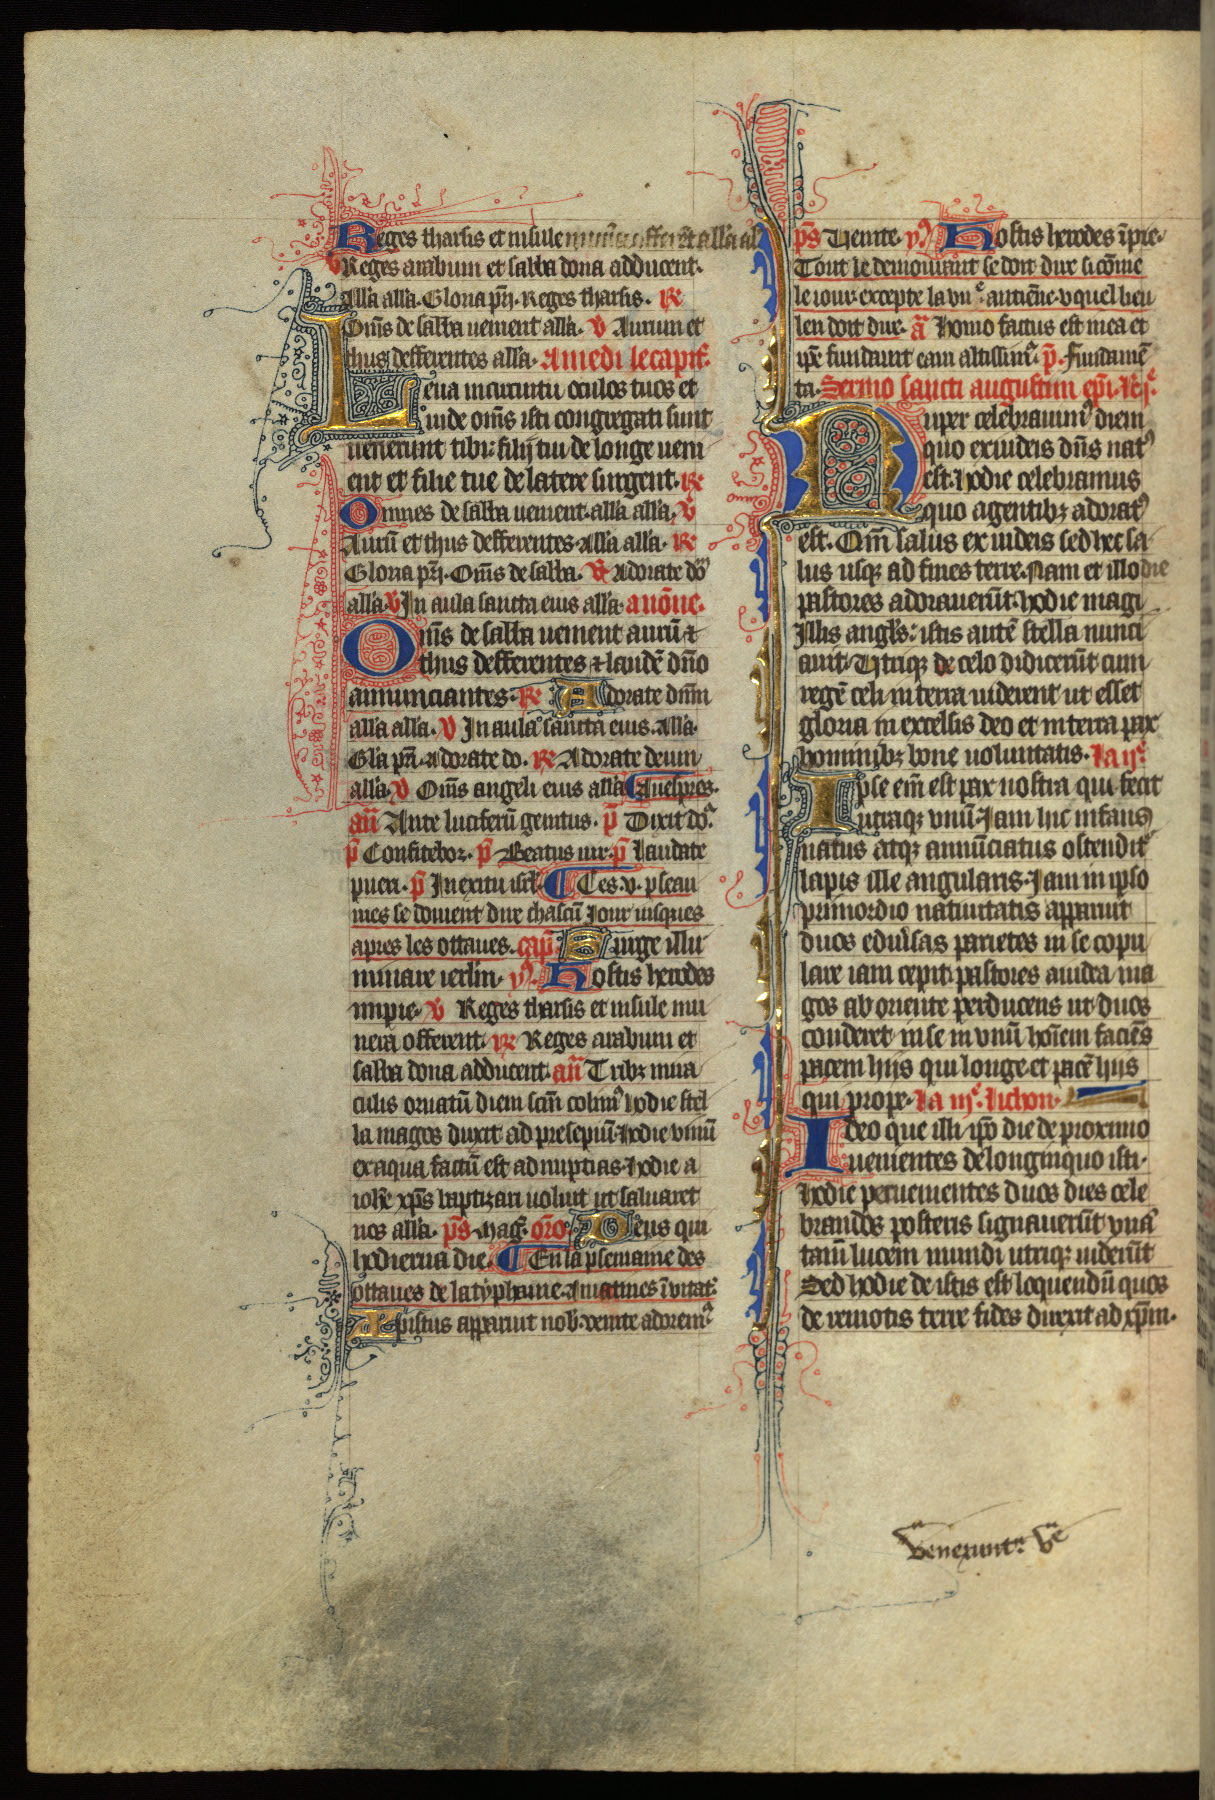 Reges tharsis et insule munera offerent alla al
V Reges arabum et sabba dona adducent.
Alla alla. Gloria pri. Reges tharsis. R
Oms de sabba uenient alla. V Aurum et
thus defferentes alla. A medi le capit.
Leua in circuitu oculos tuos et
uide oms isti congregati sunt
uenerunt tibi: filij tui de longe ueni
ent et filie tue de latere surgent. R
Omnes de sabba uenient. alla alla. V
Auru et thus defferentes. Alla alla. R
Gloria pri. Oms de sabba. R Adorate dom
alla. V In aula sancta eius alla. a none.
Oms de sabba uenient auru et
thus defferentes et laude dno
annunciantes. R Adorate dnm
alla alla. V In aula sancta eius. Alla.
Gla pri. Adorate do. R Adorate deum
alla. V Oms angeli eius alla. A uespres.
an Ante luciferu genitus. p Dixit do.
p Confitebor. p Beatus uir. p Laudate
pueri. p In exitu isrl. Ces .v. pseau
mes se doiuent dire chascu iour iusques
apres les ottaues. cap. Surge illu
minare ierlm. y. Hostis herodes
impie. V Reges tharsis et insule mu
nera offerent. R Reges arabum et
sabba dona adducent. an Tribz mira
culis ornatu diem scm colim9 hodie stel
la magos duxit ad presepiu. hodie uinu
ex aqua factu est ad nuptias. hodie a
iohe xps baptizari uoluit ut saluaret
nos alla. ps Mag. oro. Deus qui
hodierna die. En la psemaine des
ottaues de la typhaine. A matines inuitat.
Xpistus apparuit nob. uenite adorem9
ps Uenite. y. Hostis herodes ipie.
Tout le demourant se doit dire si come
le iour. excepte la vii e antiene. v quel lieu
len doit dire. a Homo factus est in ea et
ipe fundauit eam altissim9. p. Fundame
ta. Sermo sancti augustini epi. le. i e
Nuper celebrauim9 diem
quo ex iudeis dns nat9
est. hodie celebramus
quo a gentibz adorat9
est. Qm salus ex iudeis sed hec sa
lus usqz ad fines terre. Nam et illo die
pastores adorauerut. hodie magi
Illis angls: istis aute stella nunci
auit. Utriqz de celo didicerut cum
rege celi in terra uiderent ut esset
gloria in excelsis deo et in terra pax
hominibz bone uoluntatis. La ii e
Ipse em est pax nostra qui fecit
utraqz vnu. Iam hic infans
natus atqz annuciatus ostendit9
lapis ille angularis. Iam in ipso
primordio natiuitatis apparuit
duos e duisas parietes in se copu
lare iam cepit. pastores a iudea ma
gos ab oriente perducens ut duos
conderet in se in vnu hoiem facies
pacem hijs qui longe. et pace hijs
qui prope. La iii e. lichon.
Ideo que illi ipo die de proximo
uenientes de longinquo isti.
hodie peruenientes duos dies cele
brandos posteris signauerut vna
tam lucem mundi utriqz uiderut
Sed hodie de istis est loquendu quos
de remotis terre fides duxit ad xpm.
Venerunt: Ve